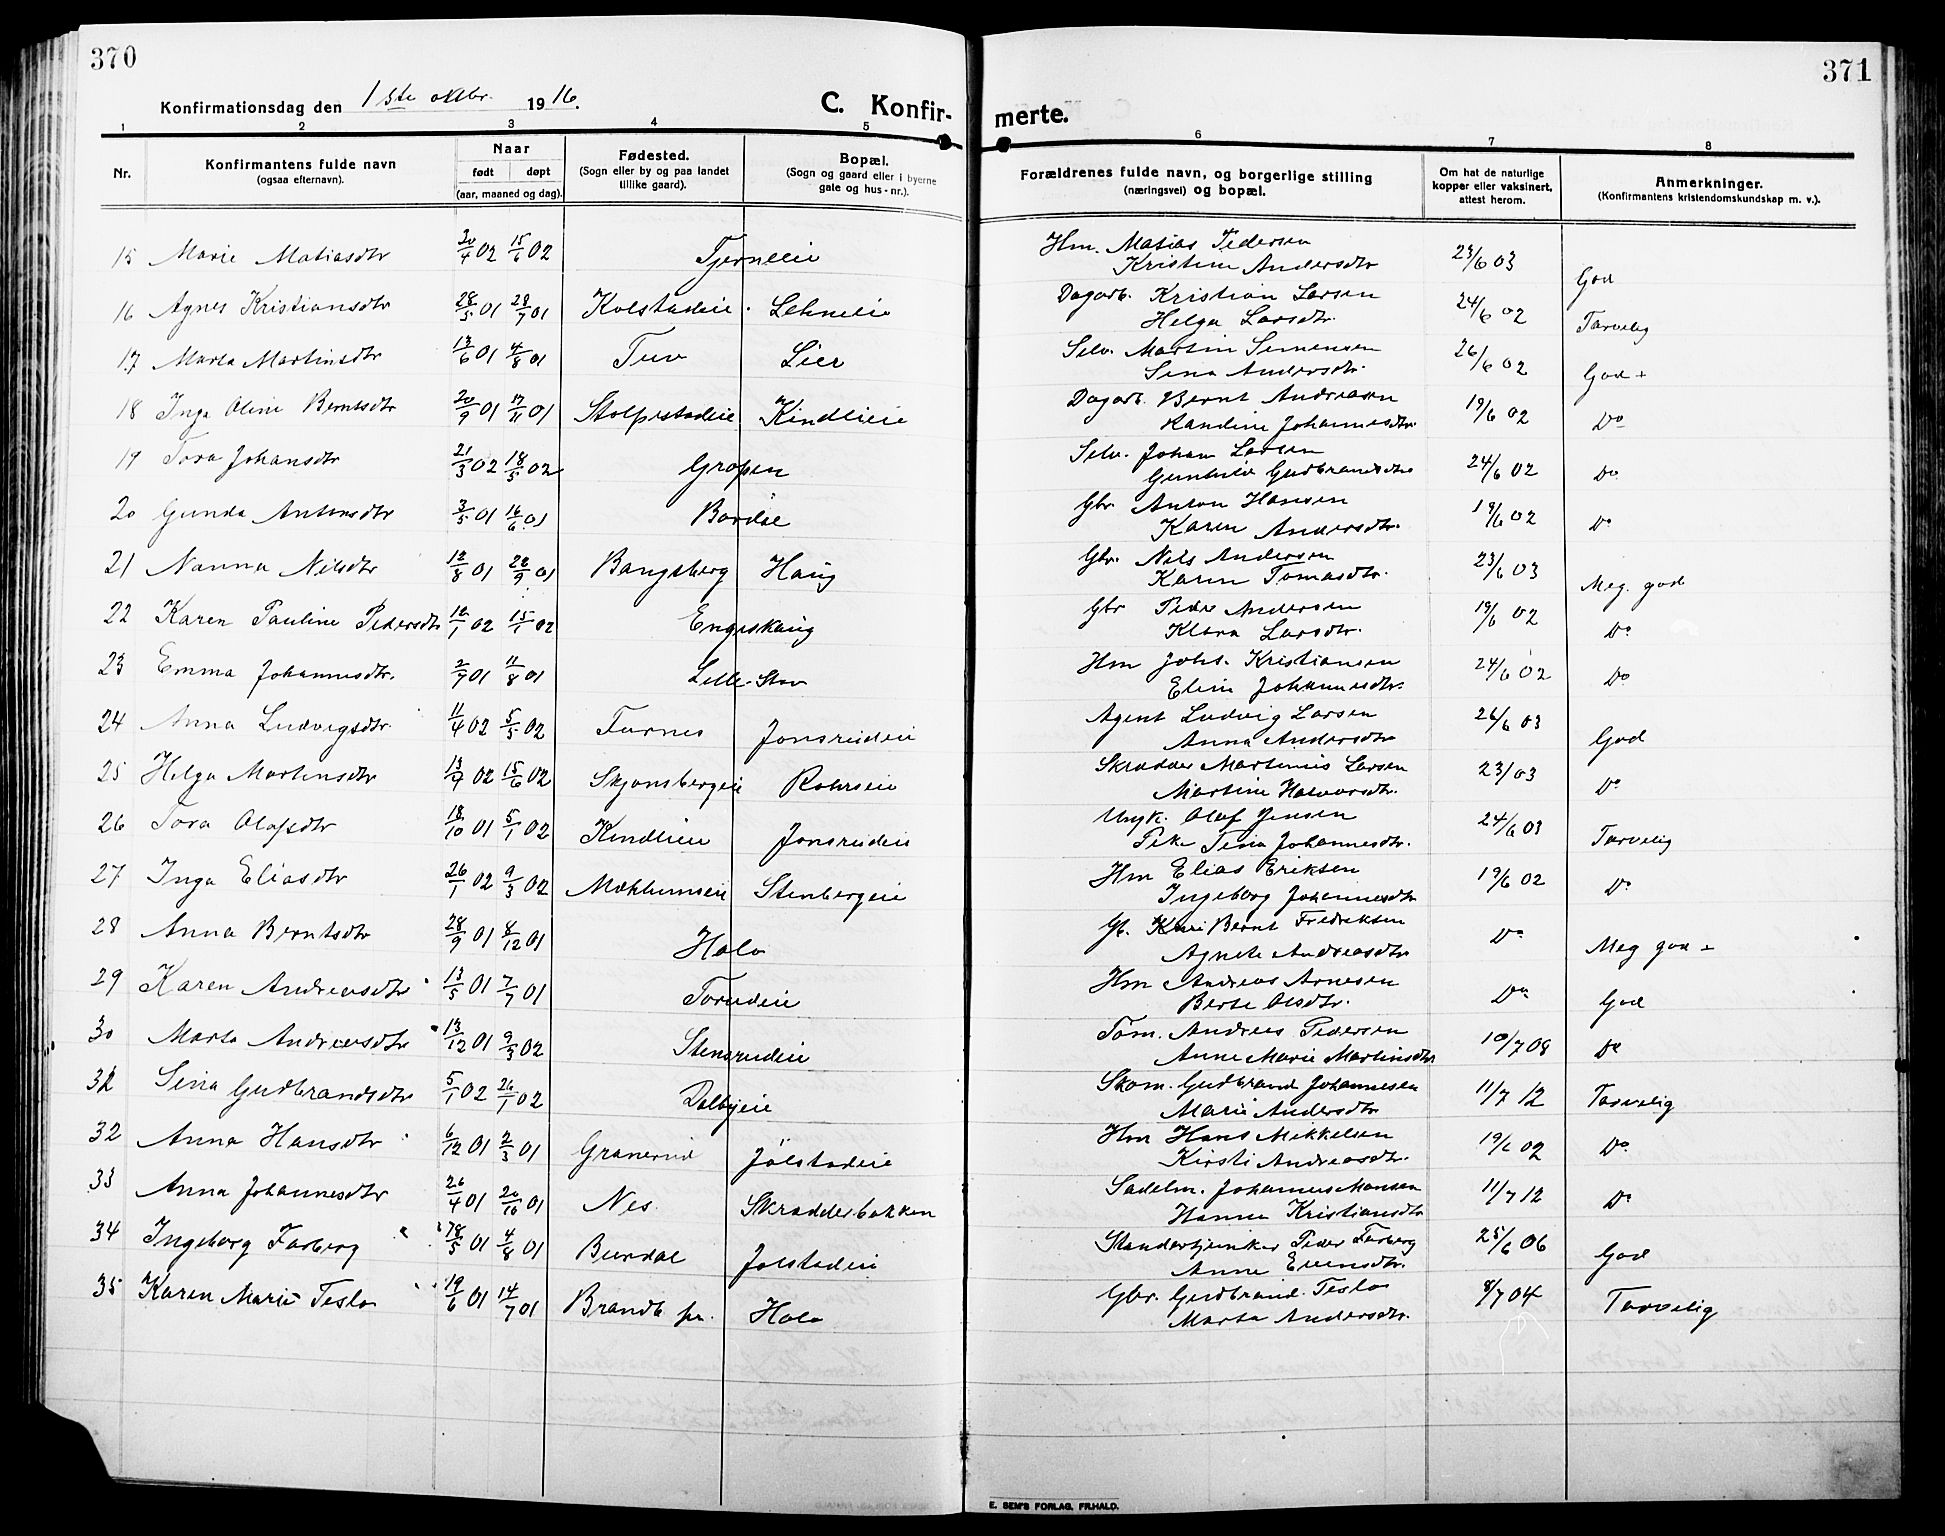 370
Konfirmationsdag den 1ste oktbr. 1916.
C. Konfir-
1 2 3 4 5
Nr. Konfirmantens fulde navn (ogsaa efternavn). Naar født døpt (aar, maaned og dag). Fødested. (Sogn eller by og paa landet tillike gaard). Bopæl. (Sogn og gaard eller i byerne gate og hus-nr.).
15 Marie Matiasdtr 20/4 02 15/6 02 Tjerneeie
16 Agnes Kristiansdtr 28/5 01 28/7 01 Kolstadeie
17 Marta Martinsdtr 13/6 01 4/8 01 Tuv Lier
18 Inga Oline Berntsdtr 20/9 01 17/11 01 Stolpestadeie Kindlieie
19 Tora Johansdtr 21/3 02 18/5 02 Gropen
20 Gunda Antonsdtr 3/5 01 16/6 01
21 Nanna Nilsdtr 12/8 01 28/9 01 Bangsberg Haug
22 Karen Pauline Pedersdtr 10/1 02 15/1 02 Engeskaug
23 Emma Johannesdtr. 2/7 01 11/8 01 Lille-Stav
24 Anna Ludvigsdtr. 11/4 02 5/5 02 Furnes Jonsrudeie
25 Helga Martinsdtr 02 15/6 02 Skjønsbergeie Rohrseie
26 Tora Olafsdtr 18/10 01 5/1 02 Kindlieie Jonsrudeie
27 Inga Eliasdtr 26/1 02 9/3 02 Mæhlumseie Stenbergeie
28 Anna Berntsdtr 28/9 01 8/12 01 Holo
29 Karen Andreasdtr 13/5 01 7/7 01 Torudeie
30 Marta Andreasdtr 13/12 01 9/3 02 Stensrudeie
31 Sina Gudbrandsdtr 5/1 02 26/1 02 Dalbyeie
32 Anna Hansdtr 6/12 01 2/3 01 Granerud Jølstadeie
33 Anna Johannesdtr 26/4 01 20/10 01 Nes. Skrædderbakken
34 Ingeborg Farberg 28/5 01 4/8 01 Jølstadeie
35 Karen Marie Teslo 19/6 01 14/7 01 Brandb. pr. Holo
371
merte.
6 7 8
Forældrenes fulde navn, og borgerlige stilling (næringsvei) og bopæl. Om hat de naturlige kopper eller vaksinert, attest herom. Anmerkninger. (Konfirmantens kristendomskundskap m. v.).
Hm. Matias Pedersen
Kristine Andersdtr 23/6 03 God
Dagarb. Kristian Larsen
Helga Larsdtr. 24/6 02 Tarvelig
Selv. Martin Simensen
Sina Andersdtr. 26/6 02 God +
Dagarb. Bernt Andreasen
Randine Johannesdtr. 19/6 02 Do
Selv. Johan Larsen
Gunhild Gudbrandsdtr 24/6 02 Do
Gbr. Anton Hansen
Karen Andersdtr. 19/6 02 Do
Gbr. Nils Andersen
Karen Tomasdtr. 23/6 03 Meg. god
Gbr Peder Andersen
Klara Larsdtr. 19/6 02 Do
Hm Johs. Kristiansen
Elin Johannesdtr. 24/6 02 Do
Agent Ludvig Larsen
Anna Andersdtr 26/6 03 God
Skrædder Martinius Larsen
Martine Halvorsdtr. 23/ 03 Do
Ungk. Olaf Jensen
Pike Tina Johannesdtr. 24/6 03 Tarvelig
Hm Elias Eriksen
Ingeborg Johannesdtr 19/6 02 Do
Bernt Fredriksen
Agnete Andreasdtr Do Meg god ÷
Hm Andreas Arnesen
Berte Olsdtr. Do God
Tøm. Andreas Pedersen
Anne Marie Martinsdtr 10/7 08 Do
Skom. Gudbrand Johannesen
Marie Andersdtr 11/7 12 Tarvelig
Hm Hans Mikkelsen
Kirsti Andreasdtr. 19/6 02 Do
Sadelm. Johannes Hansen
Hanna Kristiansdtr 11/7 12 Do
Peder Farberg
Anne Evensdtr. 25/6 06 God
Gbr. Gudbrand Teslo
Marta Andersdtr. 8/7 04 Tarvelig
E. SEM'S FORLAG, FR.HALD.